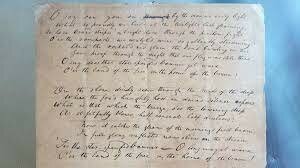 O say can you see by the dawn's early light
What so proudly we hail'd at the twilight's last gleaming
broad stripes & bright stars through the perilous fight
O'er the ramparts we watch'd were so gallantly streaming
And the rocket's red glare, the bomb bursting in air
Gave proof through the night that our flag was still there
O say does that star spangled banner yet wave
O'er the land of the free & the home of the brave?
On the shore dimly seen through the mists of the deep
Where the foe's haughty host in dread silence reposes
What is that which the breeze, o'er the towering steep
As it fitfully blows, half conceals, half discloses?
Now it catches the gleam of the morning's first beam
In full glory reflected now shines in the stream
'Tis the star-spangled banner — O long may it wave
O'er the land of the free & the home of the brave!